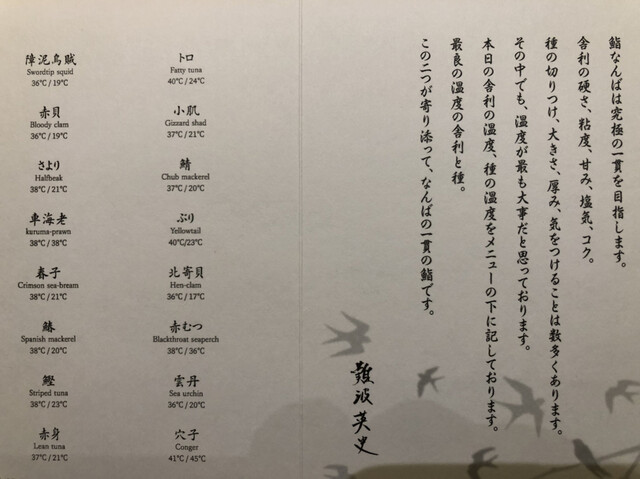 鮨なんばは究極の一貫を目指します。
舎利の硬さ、粘度、甘み、塩気、コク。
種の切りつけ、大きさ、厚み、気をつけることは数多くあります。
その中でも、温度が最も大事だと思っております。
本日の舎利の温度、種の温度をメニューの下に記しております。
最良の温度の舎利と種。
この二つが寄り添って、なんばの一貫の鮨です。
難波英史
障泥烏賊
Swordtip squid
36℃ / 19℃
赤貝
Bloody clam
36℃ / 19℃
さより
Halfbeak
38℃ / 21℃
車海老
kuruma-prawn
38℃ / 38℃
春子
Crimson sea-bream
38℃ / 21℃
鰆
Spanish mackerel
38℃ / 20℃
鰹
Striped tuna
38℃ / 23℃
赤身
Lean tuna
37℃ / 21℃
トロ
Fatty tuna
40℃ / 24℃
小肌
Gizzard shad
37℃ / 21℃
鯖
Chub mackerel
37℃ / 20℃
ぶり
Yellowtail
40℃/23℃
北寄貝
Hen-clam
36℃ / 17℃
赤むつ
Blackthroat seaperch
38℃ / 36℃
雲丹
Sea urchin
36℃ / 20℃
穴子
Conger
41℃ / 45℃